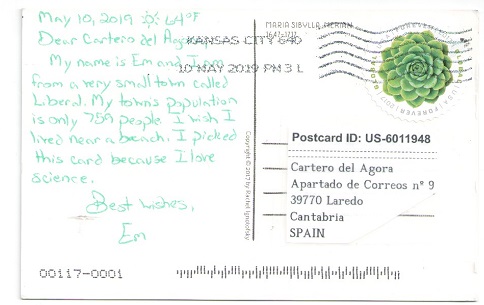 May 10, 2019 64°F
Dear Cartero del Agora
My name is Em and I am
from a very small town called
Liberal. My towns population
is only 759 people. I wish I
lived near a beach. I picked
this card because I love
science.
Best wishes,
Em
KANSAS CITY 640
10 MAY 2019 PM 3 L
MARIA SIBYLLA MERIAN
1647-1717
GLOBAL
USA FOREVER 2017
Copyright © 2017 by Rachel Ignotofsky
Postcard ID: US-6011948
Cartero del Agora
Apartado de Correos nº 9
39770 Laredo
Cantabria
SPAIN
00117-0001